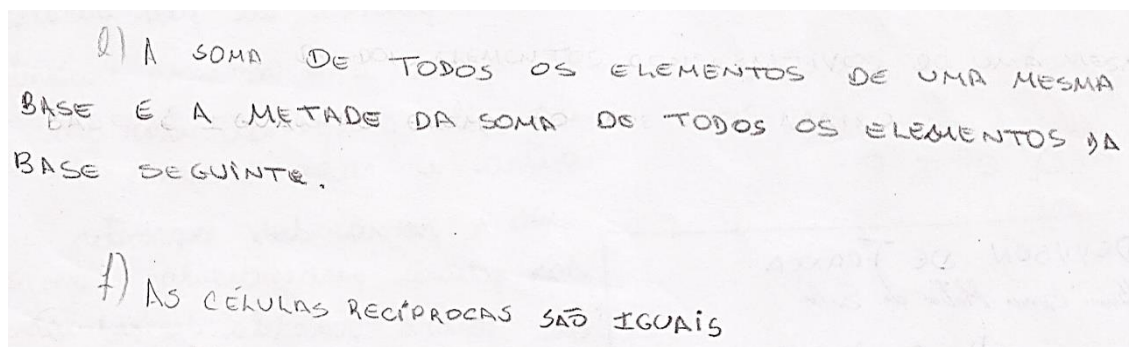 e) A SOMA DE TODOS OS ELEMENTOS DE UMA MESMA
BASE E A METADE DA SOMA DE TODOS OS ELEMENTOS DA
BASE SEGUINTE.
f) AS CÉLULAS RECÍPROCAS SÃO IGUAIS